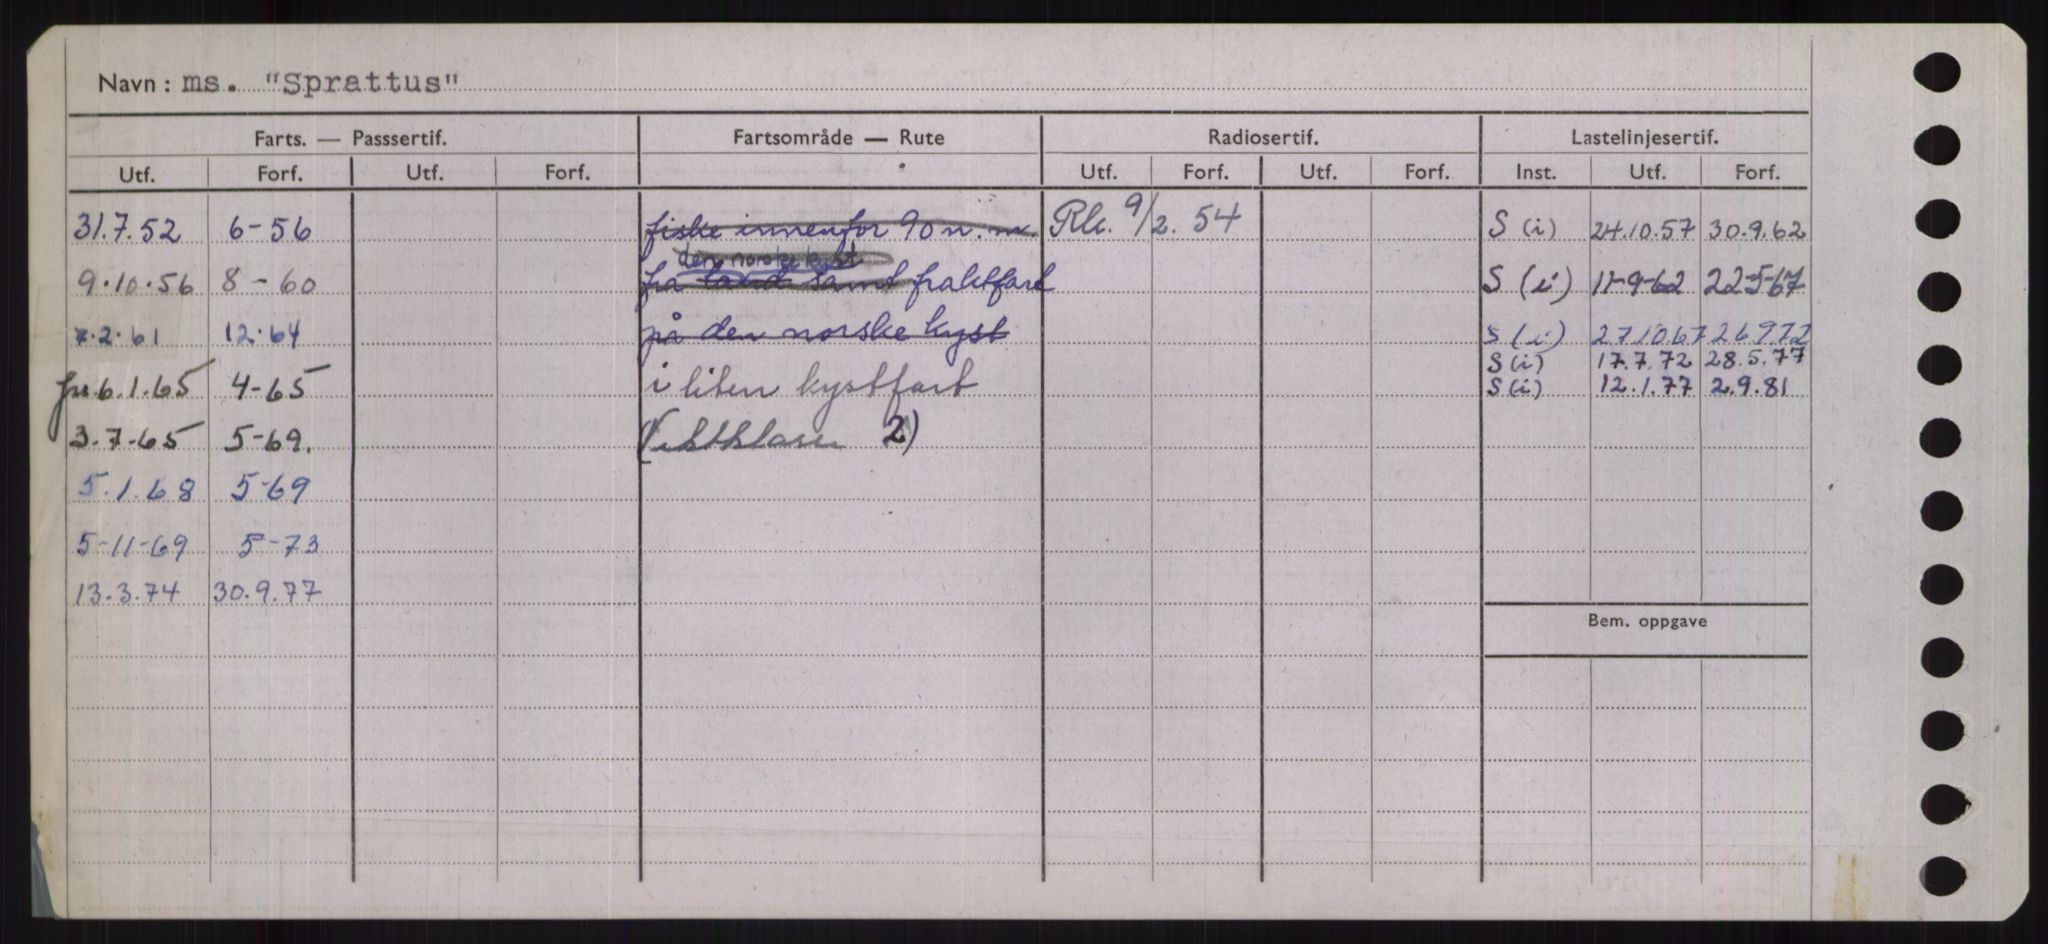 Navn: ms. "Sprattus"
Farts. — Passsertif. Fartsområde — Rute Radiosertif. Lastelinjesertif.
Utf. Forf. Utf. Forf. Utf. Forf. Utf. Forf. Inst. Utf. Forf.
31.7.52 6-56 fiske innenfor 90 n. m. 9/2. 54 S (i) 24.10.57 30.9.62
den norske kyst
9.10.56 8-60 fra land samt fraktfart S (i) 11-9-62 22-5-67
7.2.61 12.64 på den norske kyst S (i) 27.10.67 26.9.72
S (i) 17.7.72 28.5.77
6.1.65 4-65 i liten kystfart S (i) 12.1.77 2.9.81
3.7.65 5-69. 2)
5.1.68 5-69
5-11-69 5-73
13.3.74 30.9.77
Bem. oppgave